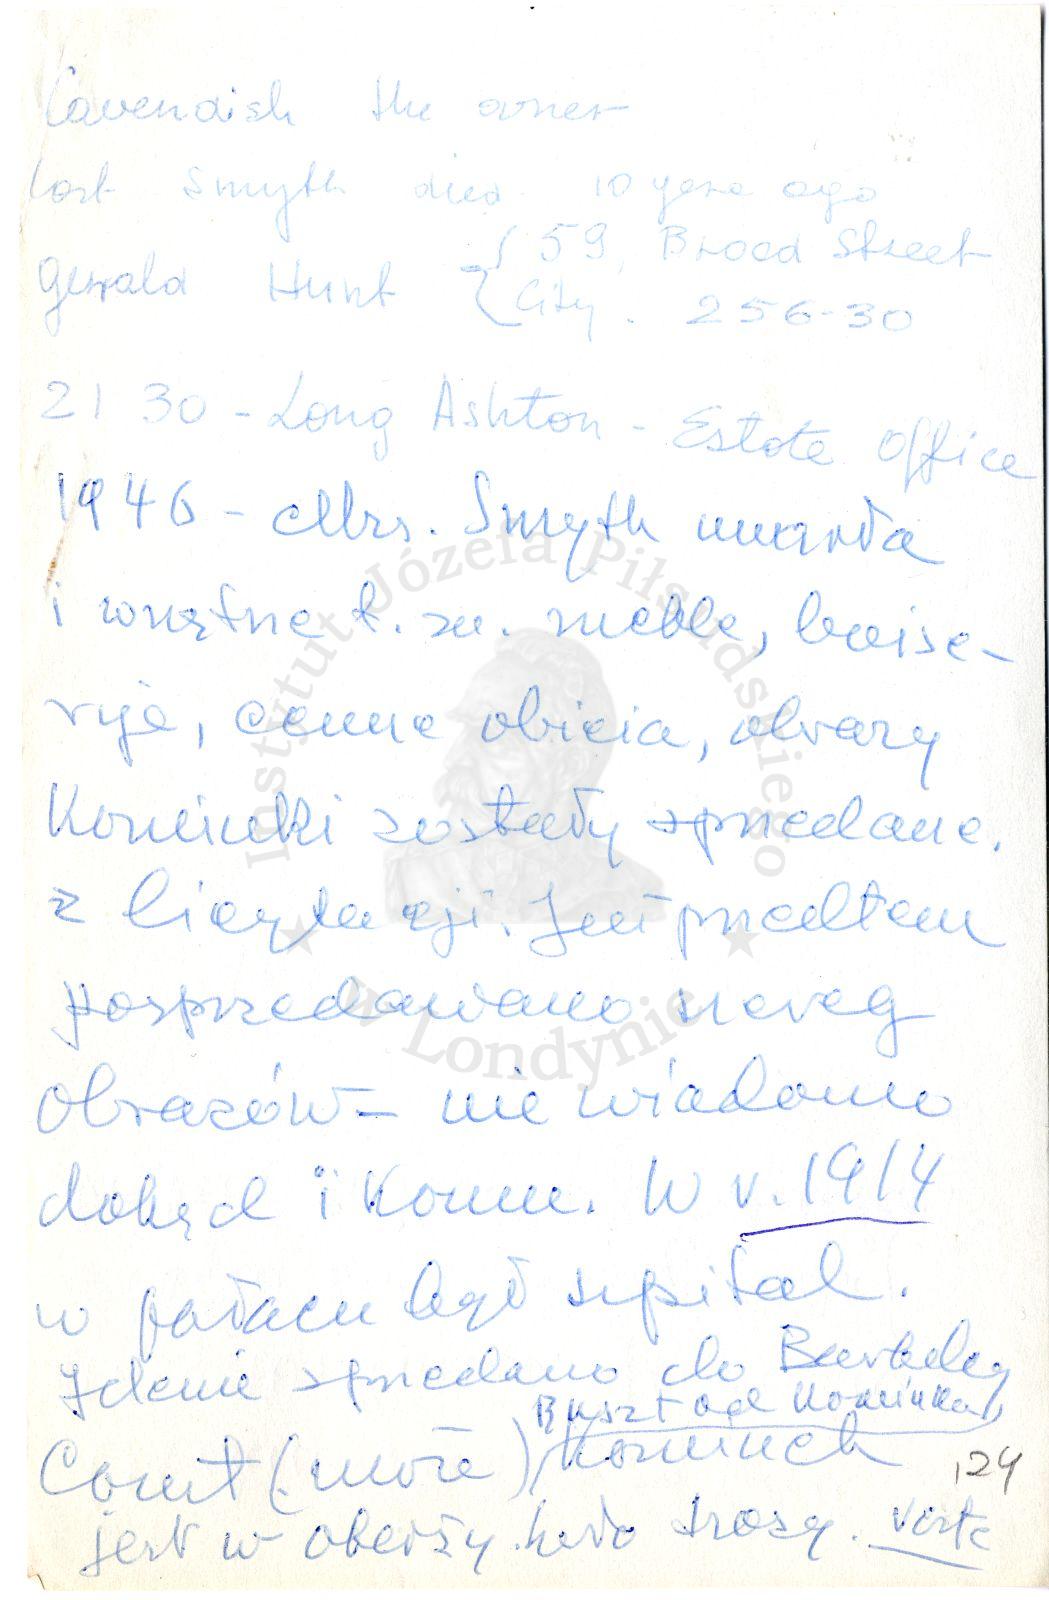 Cavendish the owner
last Smyth died 10 years ago
Gerald Hunt { 59, Broad Street
City. 256-30
21 30 - Long Ashton - Estate Office
1946 - Mrs. Smyth umarła
i wnętrze t. zn. meble, boise-
rije, cenne obicia, obrazy
Kominki zostały sprzedane.
z licytacji. Już przedtem
posprzedawano szereg
obrazów - nie wiadomo
dokąd i komu. W r. 1914
w pałacu był szpital.
Jelenie sprzedano do Berkeley
Ruszt od kominka,
Court (może) kominek
124
jest w oberży koło szosy. Verte
Instytut Józefa Piłsudskiego
w Londynie